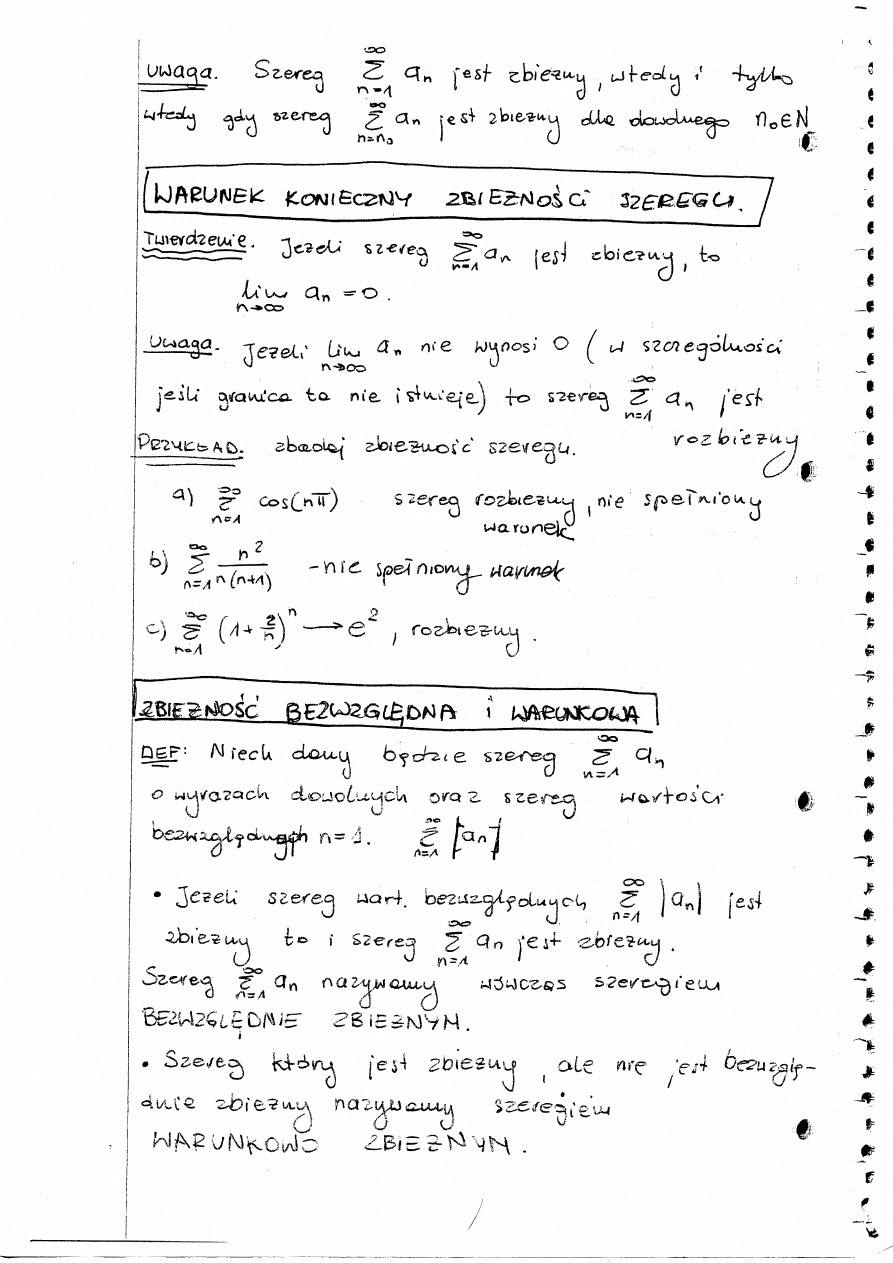 Uwaga. Szereg ∑_{n=1}^{∞} aₙ jest zbieżny, wtedy i tylko
wtedy gdy szereg ∑_{n=n₀}^{∞} aₙ jest zbieżny dla dowolnego n₀∈N
WARUNEK KONIECZNY ZBIEŻNOŚCI SZEREGU.
Twierdzenie. Jeżeli szereg ∑_{n=1}^{∞} aₙ jest zbieżny, to
lim_{n→∞} aₙ = 0.
Uwaga. Jeżeli lim_{n→∞} aₙ nie wynosi 0 (w szczególności
jeśli granica ta nie istnieje) to szereg ∑_{n=1}^{∞} aₙ jest
rozbieżny
PRZYKŁAD. zbadaj zbieżność szeregu.
a) ∑_{n=1}^{∞} cos(nπ) szereg rozbieżny, nie spełniony
warunek
b) ∑_{n=1}^{∞} n²/(n(n+1)) - nie spełniony warunek
c) ∑_{n=1}^{∞} (1+2/n)ⁿ → e², rozbieżny.
ZBIEŻNOŚĆ BEZWZGLĘDNA i WARUNKOWA
DEF: Niech dany będzie szereg ∑_{n=1}^{∞} aₙ
o wyrazach dowolnych oraz szereg wartości
bezwzględnych n=1. ∑_{n=1}^{∞} |aₙ|
• Jeżeli szereg wart. bezwzględnych ∑_{n=1}^{∞} |aₙ| jest
zbieżny to i szereg ∑_{n=1}^{∞} aₙ jest zbieżny.
Szereg ∑_{n=1}^{∞} aₙ nazywamy wówczas szeregiem
BEZWZGLĘDNIE ZBIEŻNYM.
• Szereg który jest zbieżny, ale nie jest bezwzglę-
dnie zbieżny nazywamy szeregiem
WARUNKOWO ZBIEŻNYM.